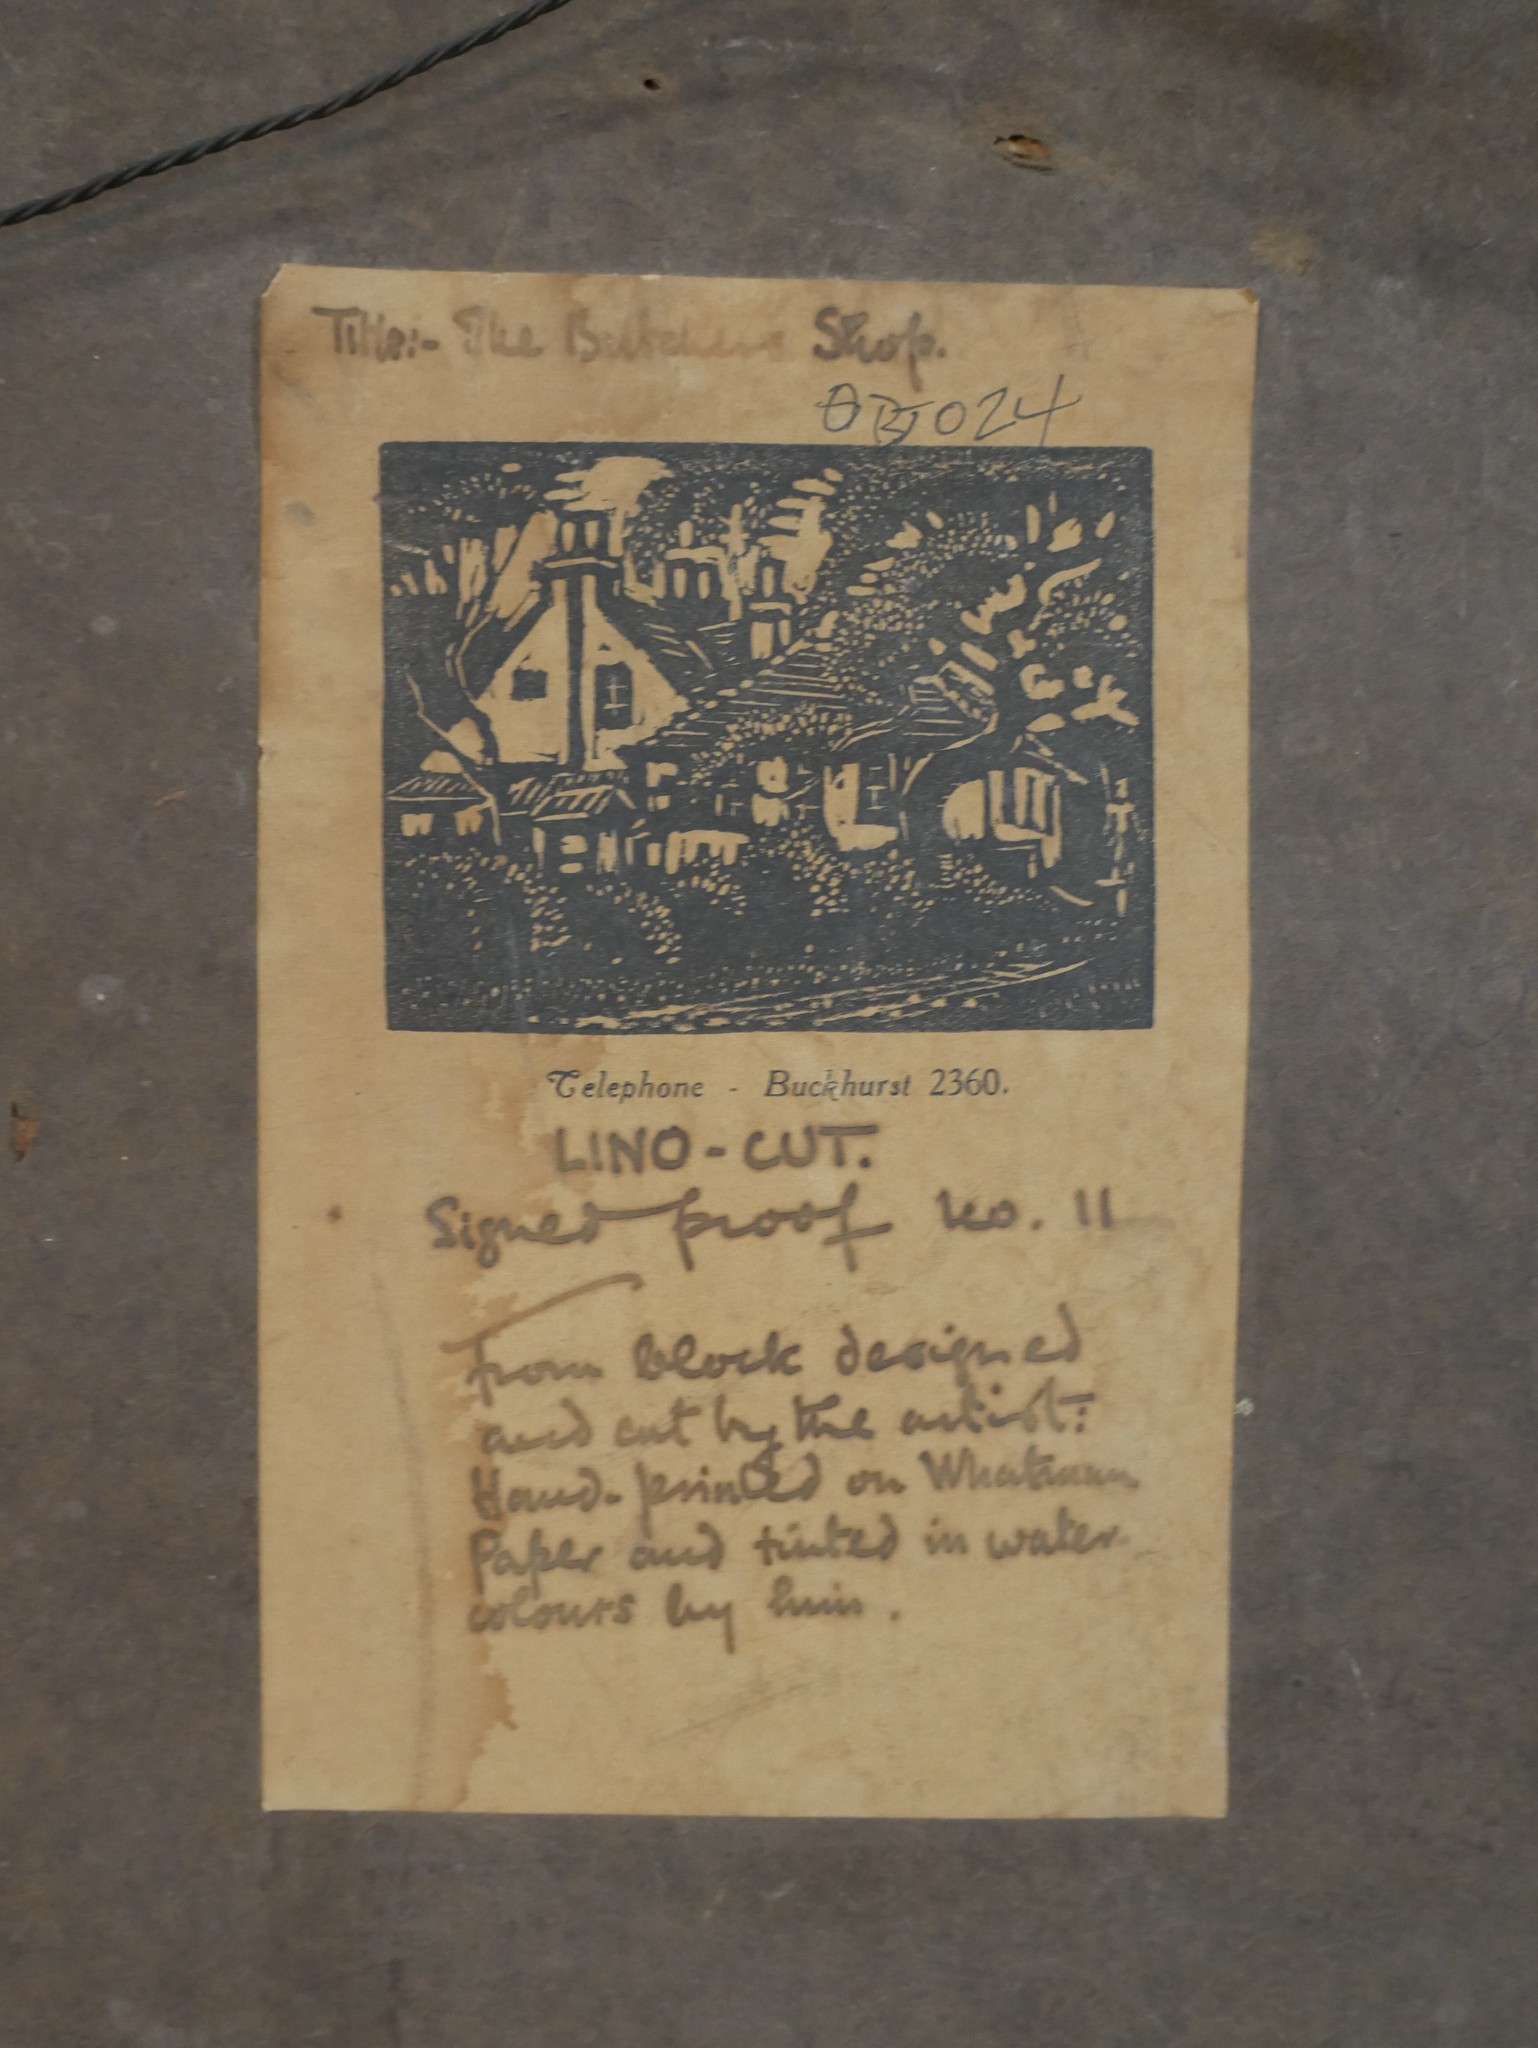 Title:- The Butchers Shop.
OBJ024
Telephone - Buckhurst 2360.
LINO-CUT.
Signed proof no. 11
From block designed
and cut by the artist:
Hand-printed on Whatman
Paper and tinted in water
colours by him.